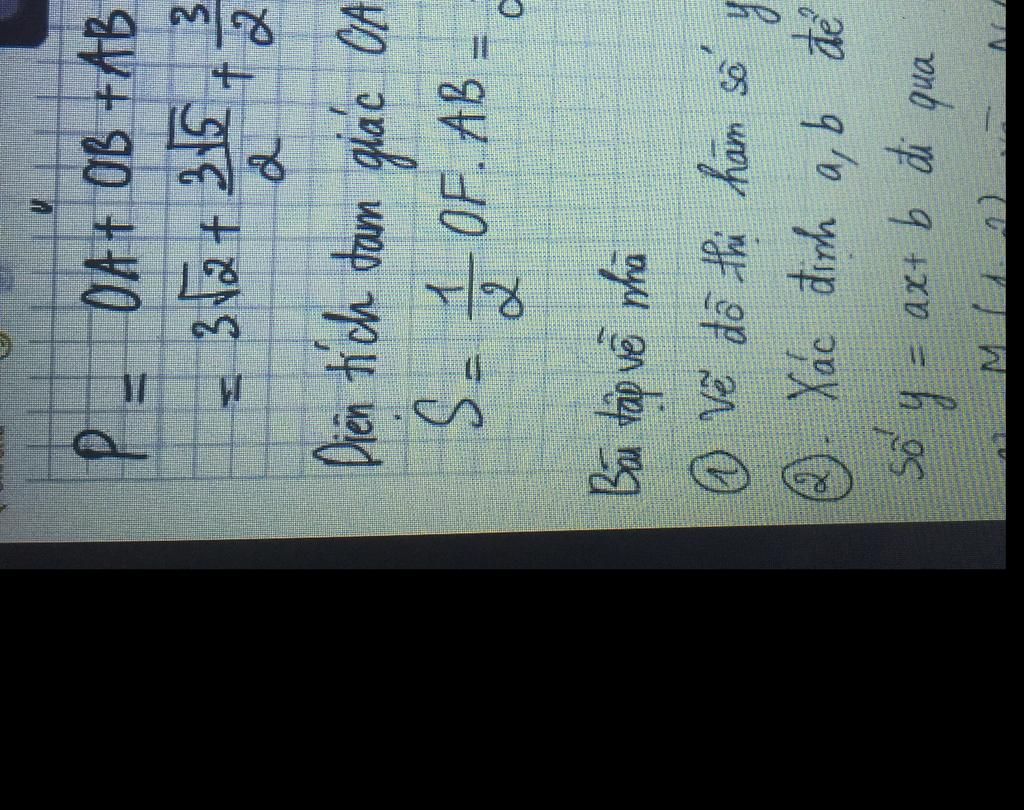 P = OA + OB + AB
= 3√2 + 3√5/2 + 3/2
Diện tích tam giác OA
S = 1/2 OF. AB =
Bài tập về nhà
① Vẽ đồ thị hàm số y
②. Xác định a, b để
số y = ax + b đi qua
M (1; 2)